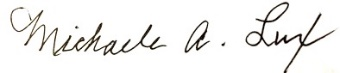 Michaele A. Lux